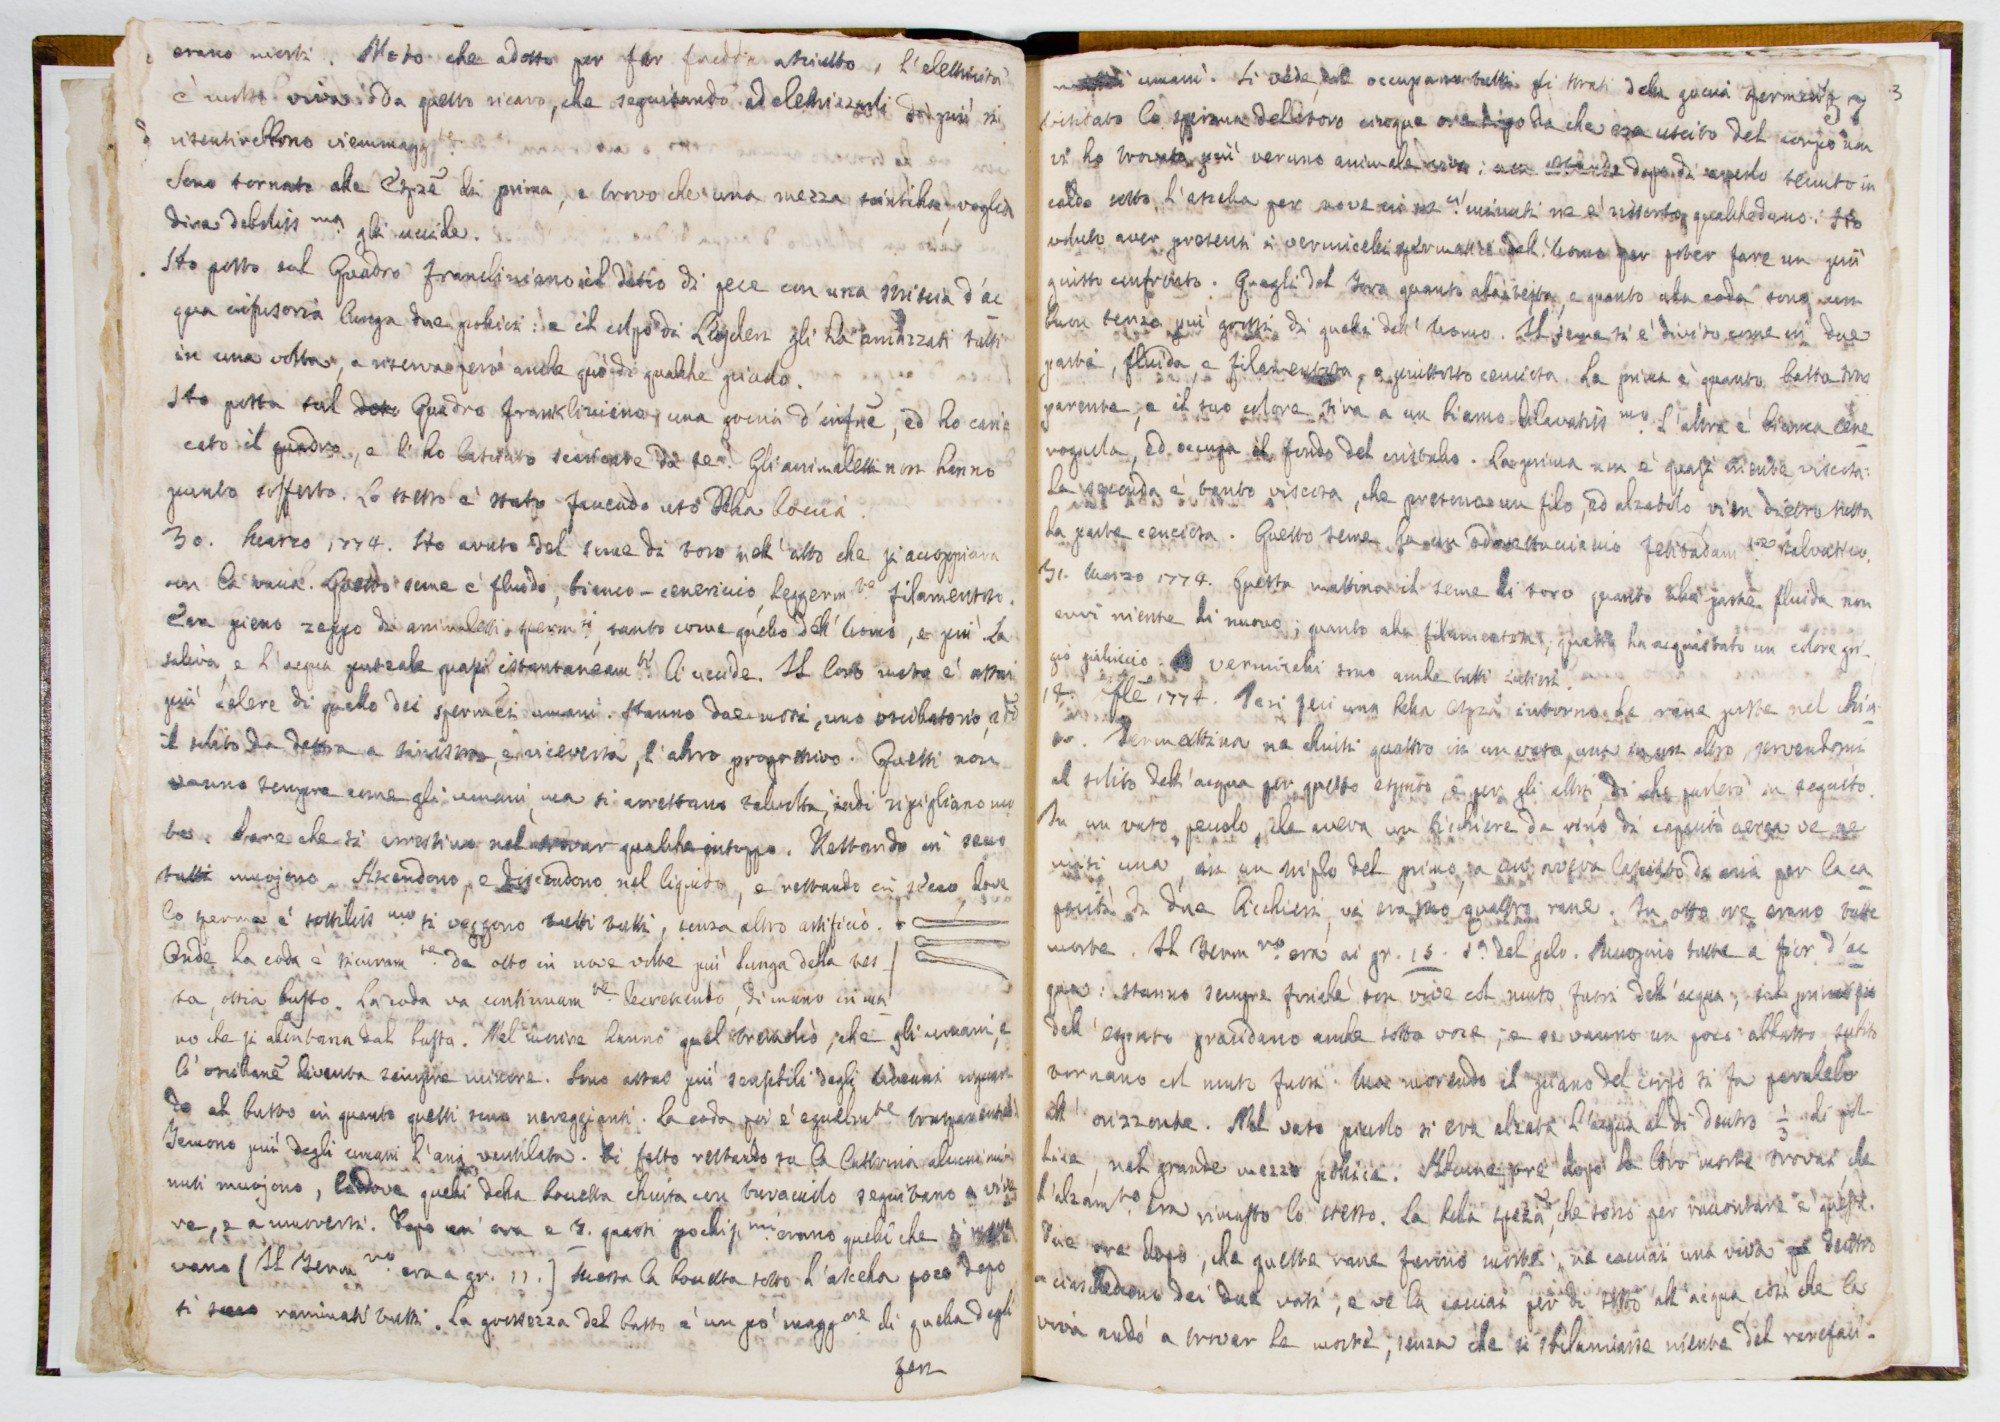 erano morti. Noto che adesso per far freddo asciutto, l'elettricità
è molto viva: da questo ricavo, che seguitando ad elettrizzarli di più si
risentirebbono viemmagg.te
Sono tornato alle Espze di prima, e trovo che una mezza scintilla, voglio
dire deboliss.ma gli uccide.
Ho posto sul Quadro Frankliniano il disco di pece con una striscia d'ac
qua infusoria lunga due pollici: e il colpo di Leyden gli ha amazzati tutti
in una volta, a riserva però anche quì di qualche piccolo.
Ho posta sul Quadro Frankliniano una goccia d'infne, ed ho cari
cato il quadro, e l'ho lasciato scaricare da se. Gli animaletti non hanno
punto sofferto. Lo stesso è stato facendo uso della boccia.
30. Marzo 1774. Ho avuto del seme di toro nell'atto che si accoppiava
con la vacca. Questo seme è fluido, bianco-cenericcio, leggerm.te filamentoso.
Era pieno zeppo di animaletti sperm.ci, tanto come quello dell'Uomo, e più. La
saliva, e l'acqua puteale quasi istantaneam.te li uccide. Il loro moto è assai
più celere di quello dei spermci umani. Hanno due moti, uno oscillatorio,
il solito da destra a sinistra, e viceversa, l'altro progressivo. Questi non
vanno sempre come gli umani, ma si arrestano talvolta, indi ripigliano mo
to. Pare che si arrestino nel trovar qualche intoppo. Restando in seco
tutti muojono. Ascendono, e discendono nel liquido, e restando in secco dove
lo sperma è sottiliss.mo si veggono tutti tutti, senza altro artificio.
Onde la coda è sicuram.te da otto in nove volte più lunga della tes
ta, ossia busto. La coda va continuam.te decrescendo, di mano in ma
no che si allontana dal busto. Nel morire hanno quel tremolio, che gli umani, e
l'oscillane diventa sempre minore. Sono assai più sensibili degli Uomini riguar
do al busto in quanto questi sono nereggianti. La coda poi è egualm.te trasparente.
Temono più degli umani l'aria ventilata. Di fatto restando su la lastrina alcuni mi
nuti muojono, laddove quelli della boccetta chiusa con turacciolo seguitano a vive
re, e a muoversi. Dopo un'ora e 3. quarti pochiss.mi erano quelli che si move
vano (Il Term.ro era a gr. 11.) Messa la boccetta sotto l'ascella poco dopo
si sono rianimati tutti. La grossezza del busto è un pò magg.ore di quella degli
3
umani. Si vede, che occupano tutti gli strati della goccia
visitato lo sperma del toro cinque ore dopo da che era uscito del corpo non
vi ho trovato più veruno animale vivo: dopo di averlo tenuto in
caldo sotto l'ascella per nove in dieci minuti ne è risorto qualcheduno. Ho
voluto aver presenti i vermicelli spermatici dell'Uomo per poter fare un più
giusto confronto. Quegli del Toro quanto alla testa, e quanto alla coda sono un
buon terzo più grossi di quelli dell'Uomo. Il seme si è diviso come in due
parti, fluida, e filamentosa, e piuttosto cenciosa. La prima è quanto basta tras
parente, e il suo colore tira a un bianco dilavatiss.mo L'altra è bianca cene
rognola, ed occupa il fondo del cristallo. La prima non è quasi niente viscosa:
La seconda è tanto viscosa, che presone un filo, ed alzatolo vien dietro tutta
la parte cenciosa. Questo seme ha un odorettucciaccio fetidam.te salvatico.
31. Marzo 1774. Questa mattina il seme di toro quanto alla parte fluida non
evvi niente di nuovo; quanto alla filamentosa, questa ha acquistato un colore gri
gio gialliccio. vermicelli sono anche tutti intieri.
Ieri feci una bella Espza intorno le rane poste nel chiu
so. Ier mattina ne chiusi quattro in un vaso, una in un altro, servendomi
al solito dell'acqua per questo espmto, e per gli altri, di che parlerò in seguito.
In un vaso piccolo, che aveva un bicchiere da vino di capacità aerea ve ne
misi una, in un triplo del primo, a cui aveva lasciato di aria per la ca
pacità di due bicchieri, vi erano quattro rane. In otto ore erano tutte
morte. Il Term.ro era ai gr. 15. s.a del gelo. Muojono tutte a fior d'ac
qua: stanno sempre finchè son vive col muso fuori dell'acqua; sul principio
dell'espmto gracidano anche sotto voce, e se vanno un poco abbasso, subito
tornano col muso fuori. Ma morendo il piano del corpo si fa paralello
all'orizzonte. Nel vaso piccolo si era alzata l'acqua al di dentro 1/3 di pol-
lice, nel grande mezzo pollice. Alcune ore dopo la loro morte trovai che
l'alzam.to era rimasto lo stesso. La bella spezà, che sono per raccontare è questa.
Due ore dopo, che queste rane furono morte, ne cacciai una viva dentro
a ciascheduno dei due vasi, e ve la cacciai per di sotto all'acqua così che la
viva andò a trovar le morte, senza che si sbilanciasse niente del rarefaci-